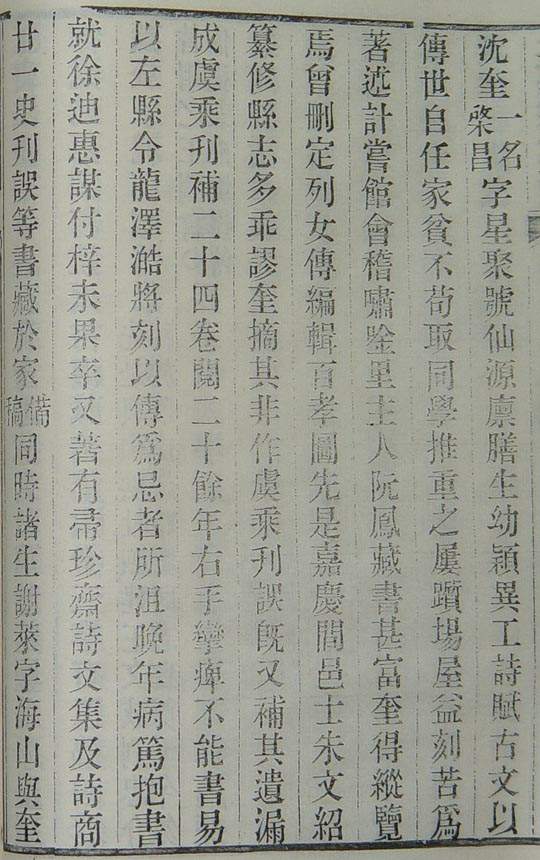 沈奎一名棨昌字星聚號仙源廪膳生幼穎異工詩賦古文以
傳世自任家貧不苟取同學推重之屢躓場屋益刻苦爲
著述計嘗館會稽嘯唫里主人阮鳳藏書甚富奎得縱覽
焉曾刪定列女傳編輯百孝圖先是嘉慶間邑士朱文紹
纂修縣志多乖謬奎摘其非作虞乘刊誤旣又補其遺漏
成虞乘刊補二十四卷閱二十餘年右手攣痺不能書易
以左縣令龍澤澔將刻以傳爲忌者所沮晚年病篤抱書
就徐迪惠謀付梓未果卒又著有帚珍齋詩文集及詩商
廿一史刊誤等書藏於家備稿同時諸生謝萊字海山與奎